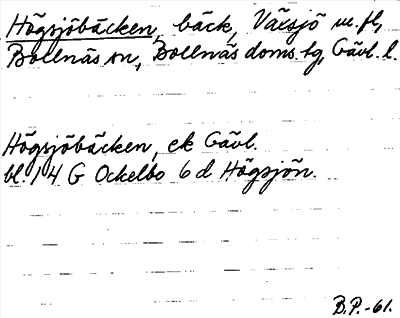 Högsjöbäcken, bäck, Växsjö m.fl.,
Bollnäs sn, Bollnäs doms.tg, Gävl. l.
Högsjöbäcken, ek Gävl.
bl. 14 G Ockelbo 6 d Högsjön.
B.P.-61.